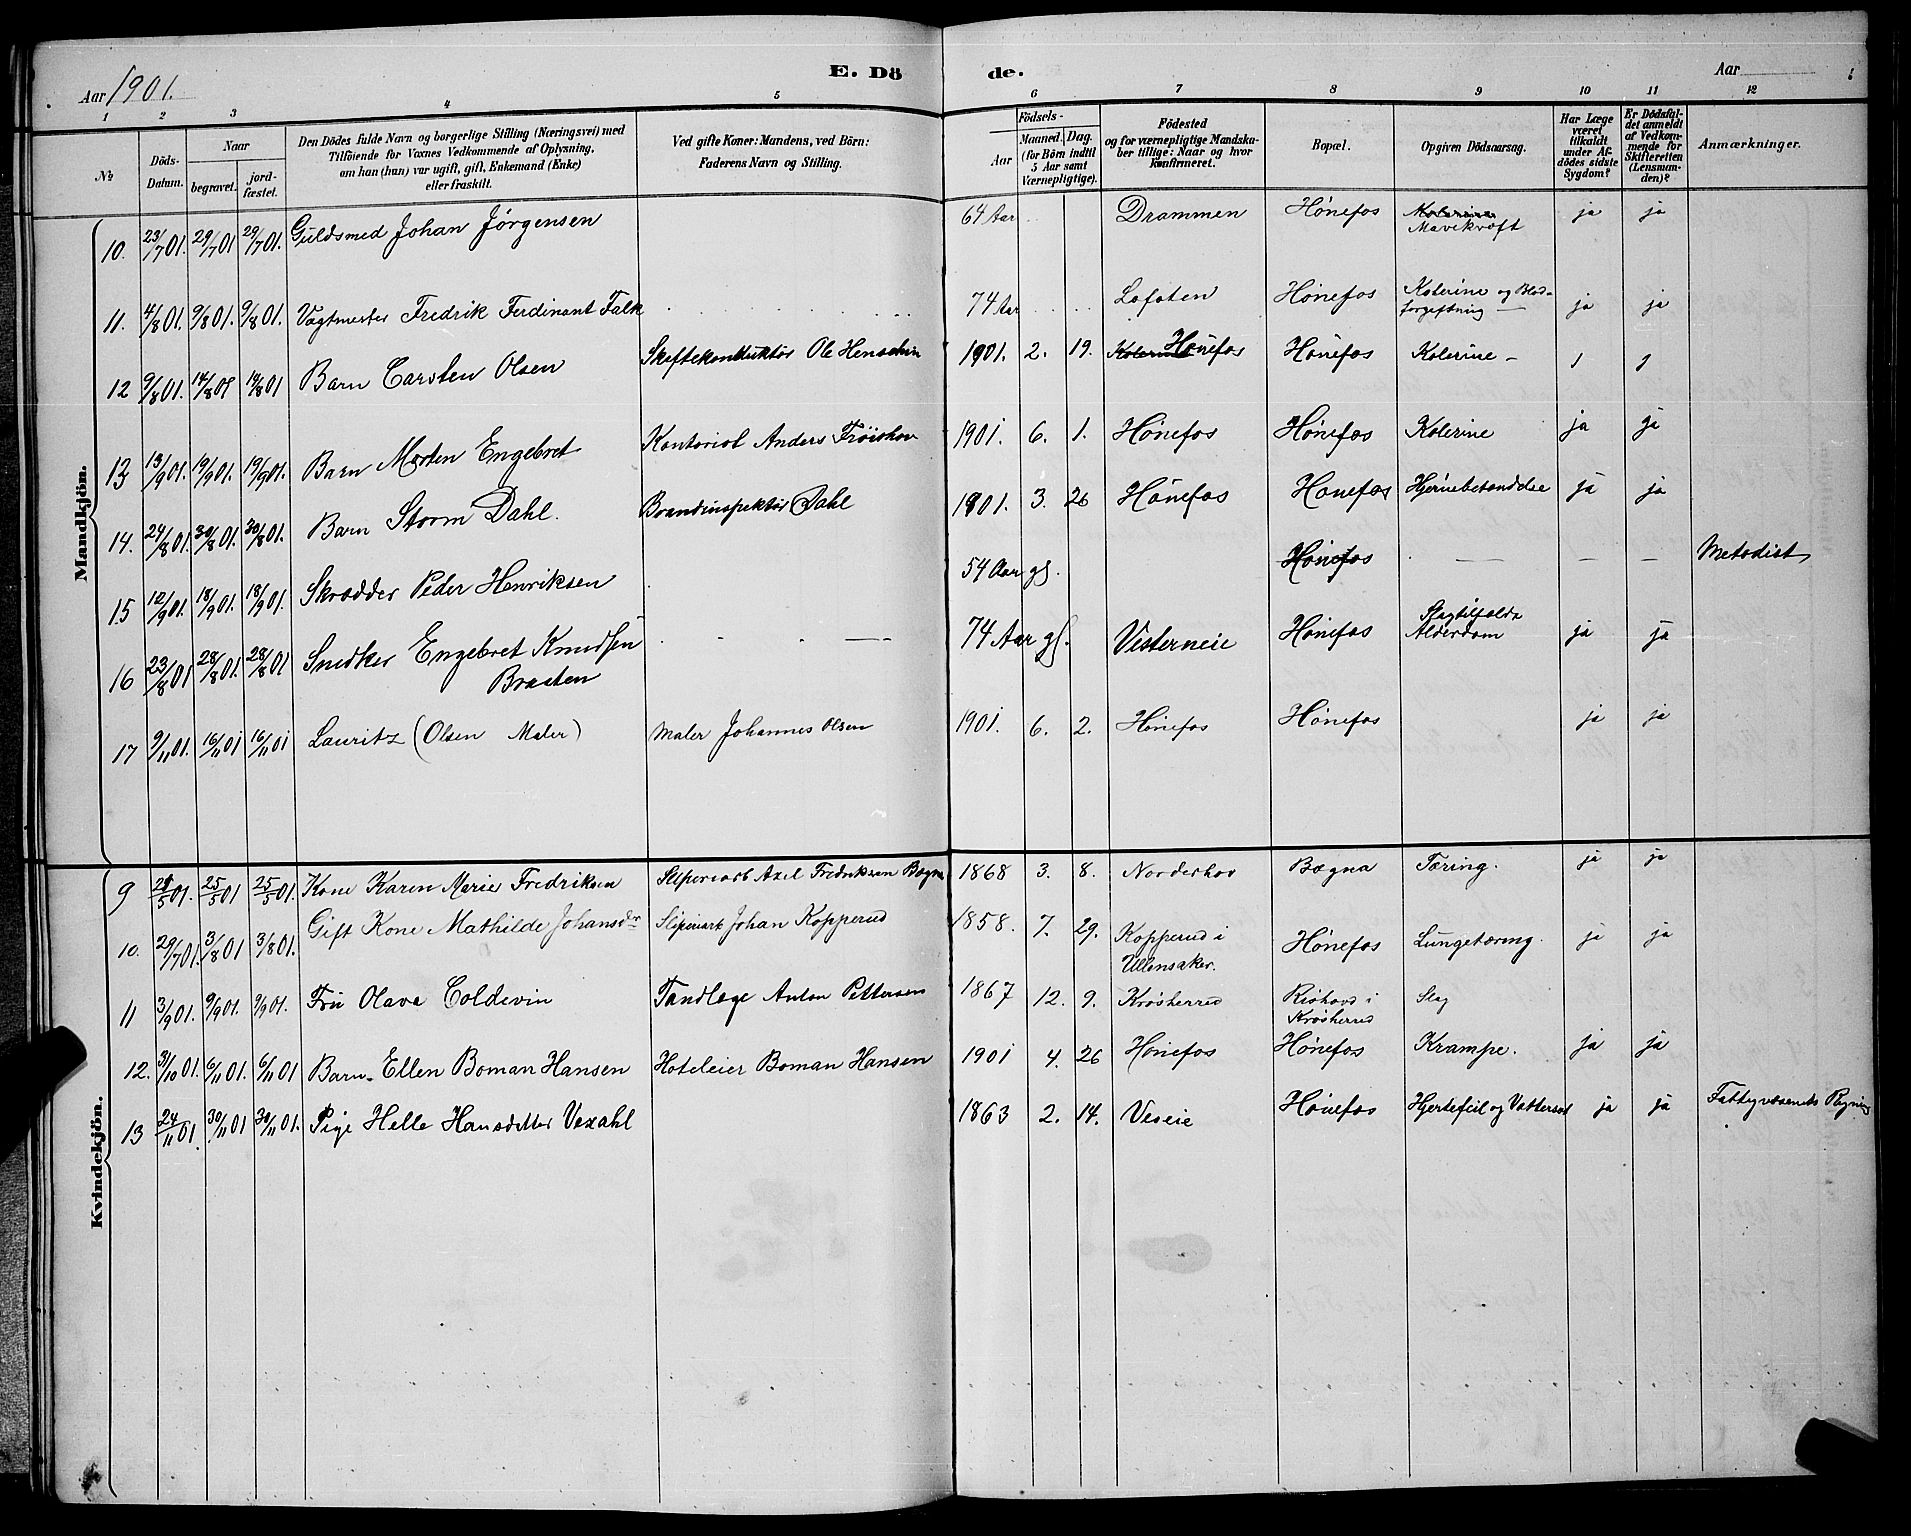 Aar 1901.
E. Dö de.
Aar
1 2 3 4 5 6 7 8 9 10 11 12
№
Döds-Datum.
Naar
begravet.
jord-fæstet.
Den Dödes fulde Navn og borgerlige Stilling (Næringsvei) med
Tilföiende for Voxnes Vedkommende af Oplysning,
om han (hun) var ugift, gift, Enkemand (Enke)
eller fraskilt.
Ved gifte Koner: Mandens, ved Börn:
Faderens Navn og Stilling.
Födsels-
Aar
Maaned. Dag.
(for Börn indtil
5 Aar samt
Værnepligtige).
Födested
og for værnepligtige Mandska-
ber tillige: Naar og hvor
konfirmeret.
Bopæl.
Opgiven Dödsaarsag.
Har Læge
været
tilkaldt
under Af-
dödes sidste
Sygdom?
Er Dödsfal-
det anmeldt
af Vedkom-
mende for
Skifteretten
(Lensman-
den)?
Anmærkninger.
Mandkjön.
10. 23/7 01. 29/7 01 29/7 01. Guldsmed Johan Jörgensen 64 Aar Drammen Hønefos Kolerine Mavekræft ja ja
11. 4/8 01. 9/8 01. 9/8 01. Vagtmester Fredrik Ferdinant Falk 74 Aar Lofoten Hønefos Kolerine og Blod-
forgiftning ja ja
12 9/8 01. 14/8 01 14/8 01 Barn Carsten Olsen Skiftekonduktør Ole 1901. 2. 19. Kolerine Hønefos Hønefos Kolerine
13 13/9 01. 19/9 01. 19/9 01. Barn Morten Engebret Kontorist Anders Frøishov 1901. 6. 1. Hønefos Hønefos Kolerine ja ja
14. 24/8 01. 30/8 01. 30/8 01. Barn Storm Dahl. Brandinspektør Dahl 1901. 3. 26 Hønefos Hønefos Hjernebetændelse ja ja
15 12/9 01. 18/9 01. 18/9 01. Skrædder Peder Henriksen 54 Aar gl. Hønefos Metodist
16 23/8 01 28/8 01. 28/8 01 Snedker Engebret Knudsen
Braaten 74 Aar gl. Vesterneie Hønefos Slagtilfælde
Alderdom ja ja
17 9/11 01. 16/11 01 16/11 01 Lauritz (Olsen Maler) Maler Johannes Olsen 1901. 6. 2. Hønefos Hønefos ja ja
Kvindekjön.
9 /5 01. 25/5 01 25/5 01. Kone Karen Marie Fredriksen Sliperiarb Axel Fredriksen Bægna 1868 3. 8. Norderhov Bægna Tæring. ja ja
10. 29/7 01. 3/8 01 3/8 01. Gift Kone Mathilde Johansdr Sliperiarb Johan Kopperud 1858. 7. 29. Kopperud i
Ullensaker. Hønefos Lungetæring. ja ja
11 3/9 01. 9/9 01. 9/9 01. Fru Olava Coldevin Tandlæge Anton Pettersen 1867 12. 9. Krøsherred i
Krøsherred Slag
12. 31/10 01. 6/11 01. 6/11 01 Barn. Ellen Boman Hansen Hoteleier Boman Hansen 1901 4. 26 Hønefos Hønefos Krampe. ja ja
13 24/11 01. 30/11 01 30/11 01. Pige Helle Hansdatter Vexahl 1863 2. 14. Veseie Hønefos Hjertefeil og Vattersot ja ja Fattigvæsenets Regning